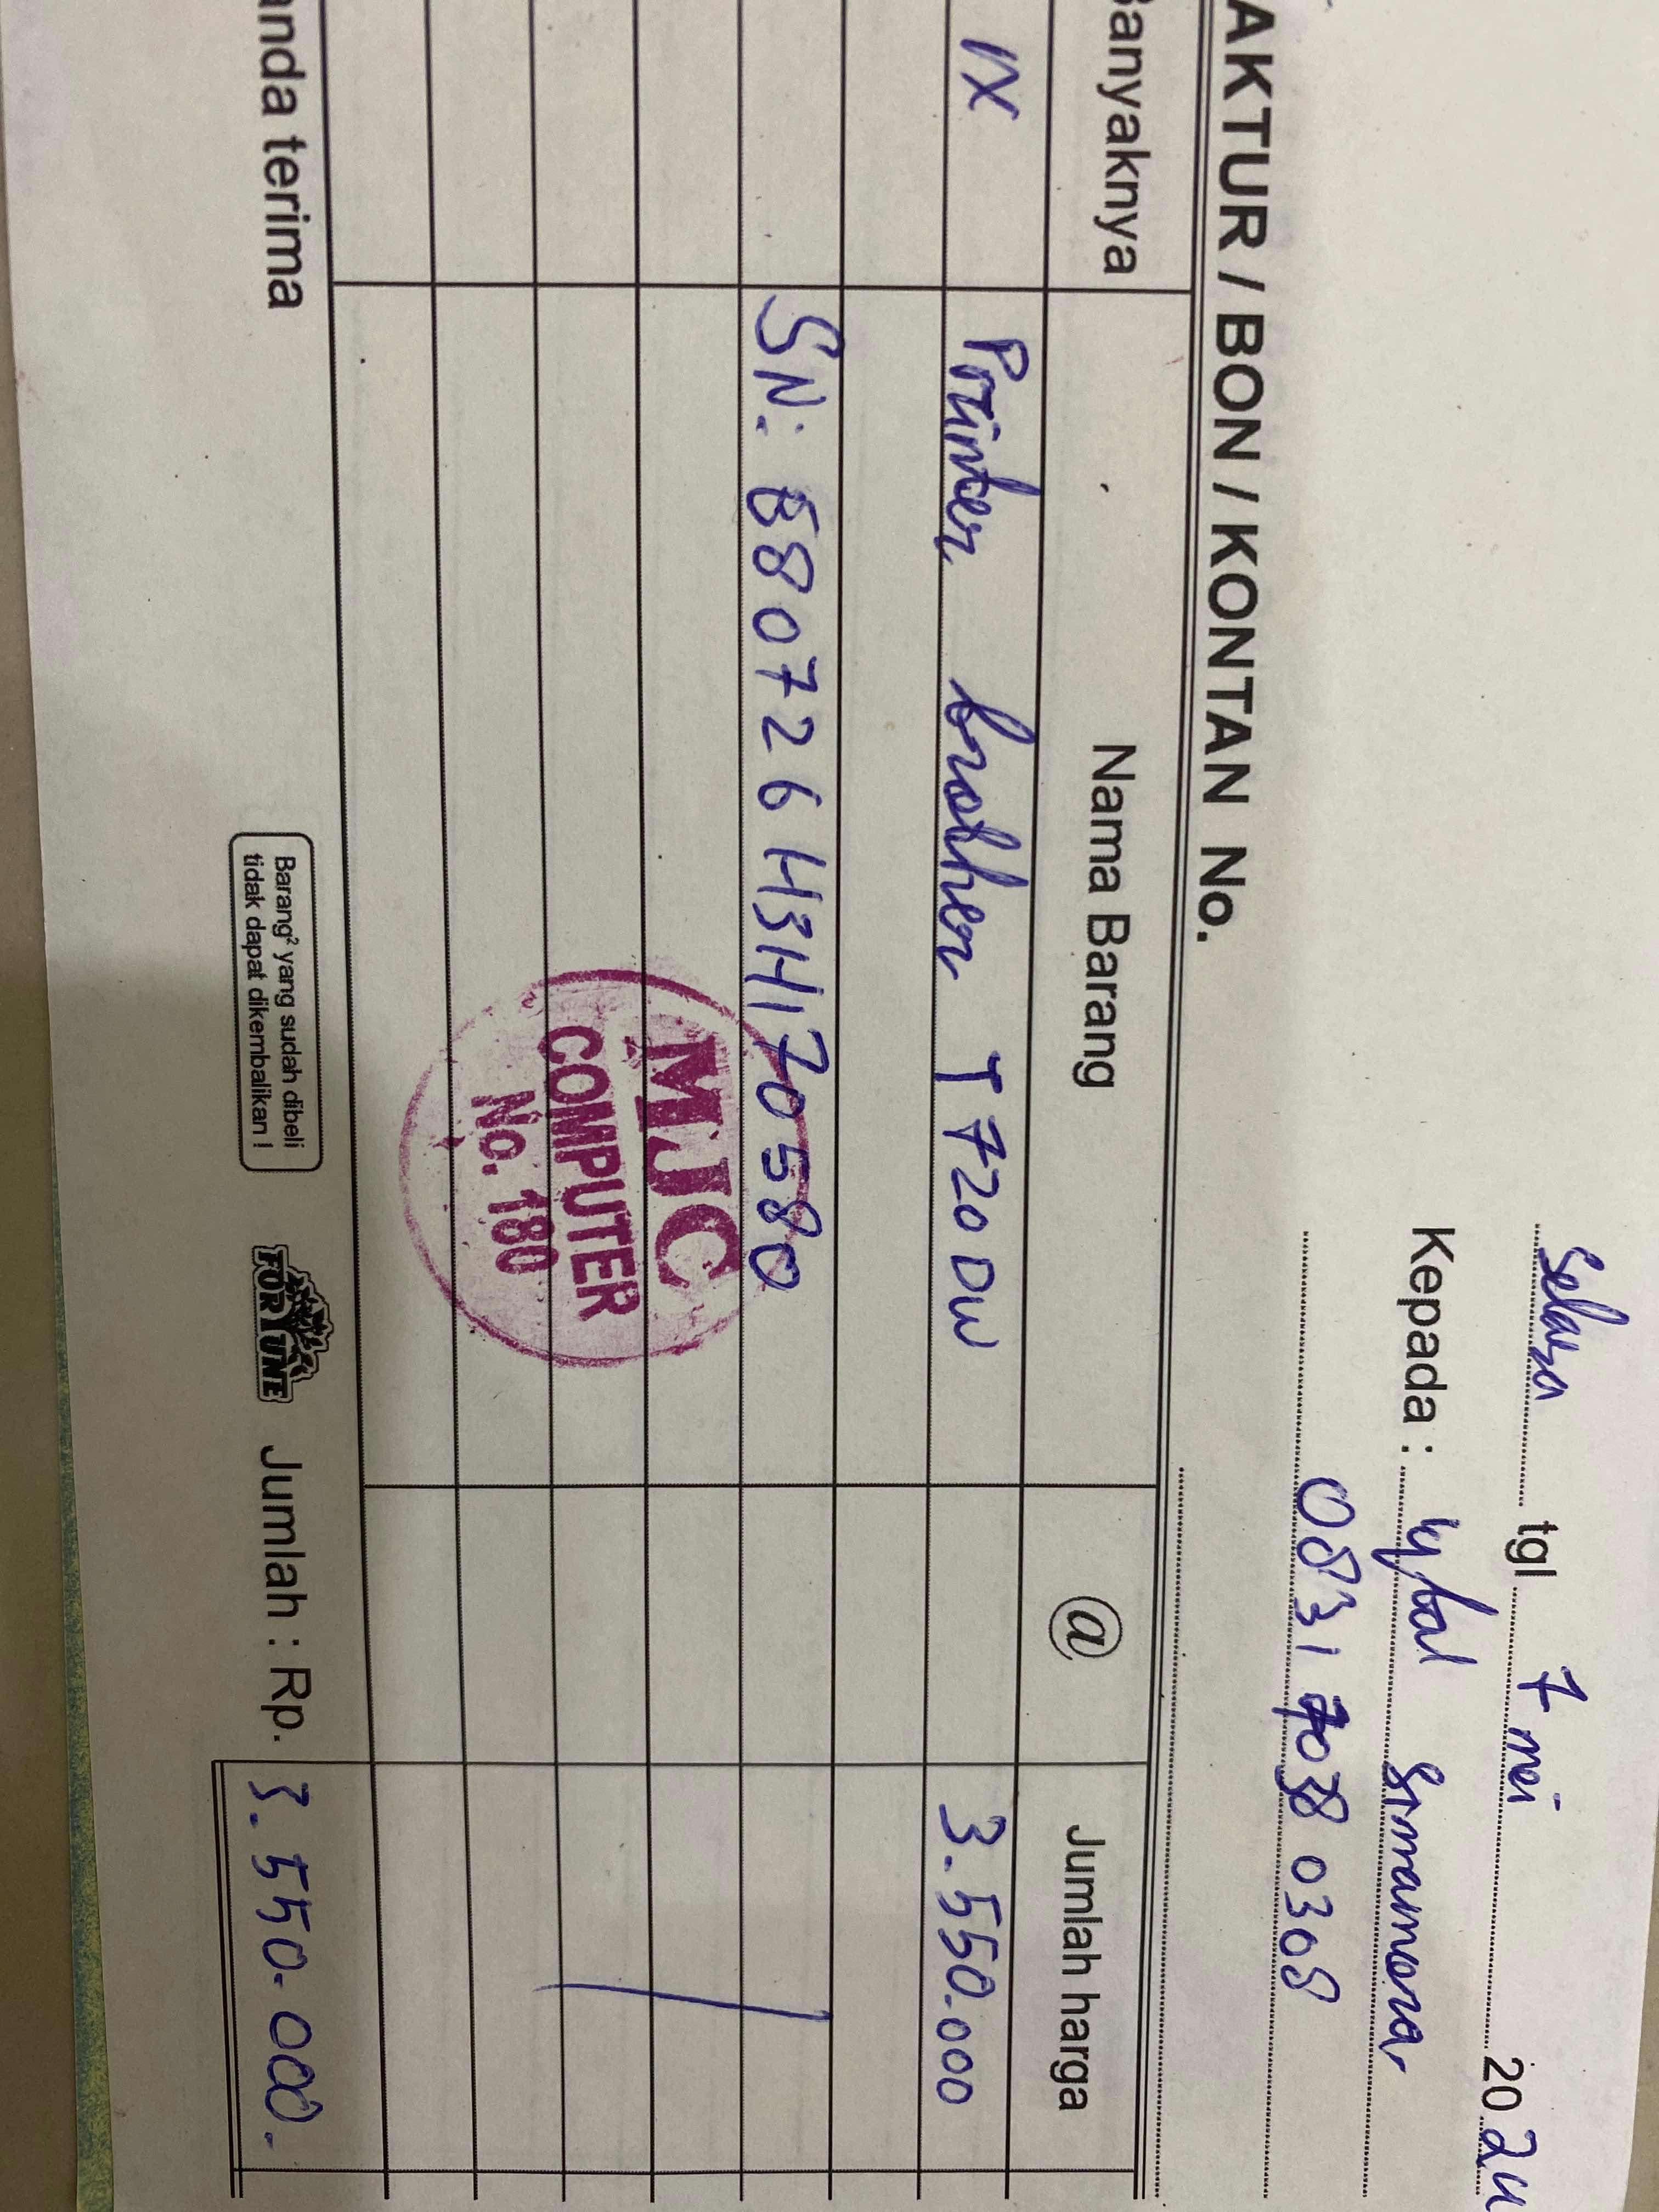 Selasa tgl 7 mei 20 24
Kepada : Iqbal
0831 7038 0308
AKTUR / BON / KONTAN No.
Banyaknya Nama Barang @ Jumlah harga
1X Printer brother T720 DW 3.550.000
SN: E80726H3H170580
MJC
COMPUTER
No. 180
anda terima
Barang² yang sudah dibeli
tidak dapat dikembalikan !
FORTUNE
Jumlah : Rp. 3.550.000.-